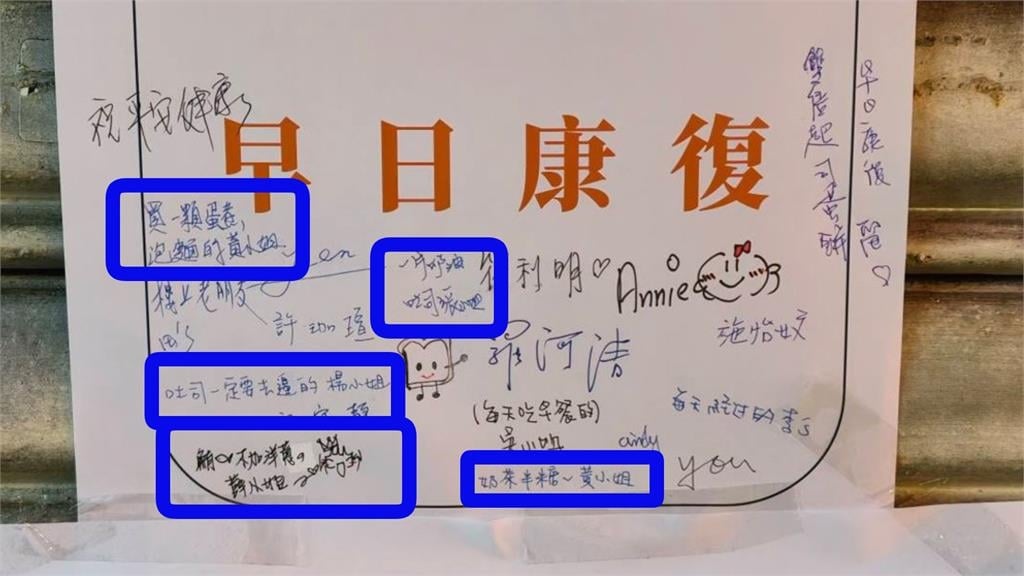 祝平安健康
早日康復
雙倍起司蛋餅
早日康復
買一顆蛋卷,
泡麵的黃小姐
en
樓上老朋友
許
一片奶油
吐司張小姐
利明♡
Annie
施怡妏
羅河清
吐司一定要去邊的 楊小姐
(每天吃早餐的)
吳小姐
cindy
每天經過的李's
不加洋蔥
薛小姐
奶茶半糖~黃小姐
you